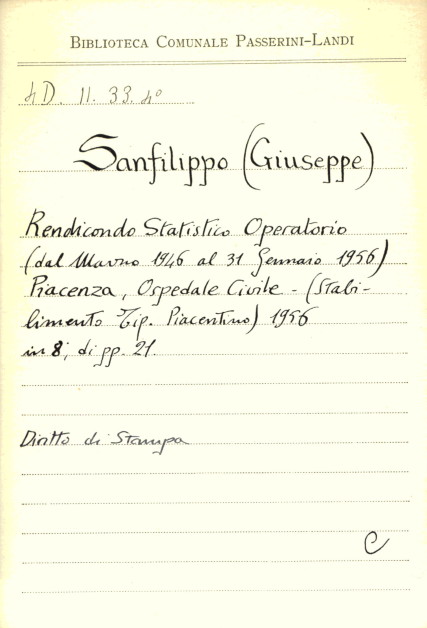 BIBLIOTECA COMUNALE PASSERINI-LANDI
4D. 11. 33. 4º
Sanfilippo (Giuseppe)
Rendicondo Statistico Operatorio
(dal Marzo 1946 al 31 Gennaio 1956)
Piacenza, Ospedale Civile - (Stabi-
limento Tip. Piacentino) 1956
in 8; di pp. 21.
Diritto di Stampa
C